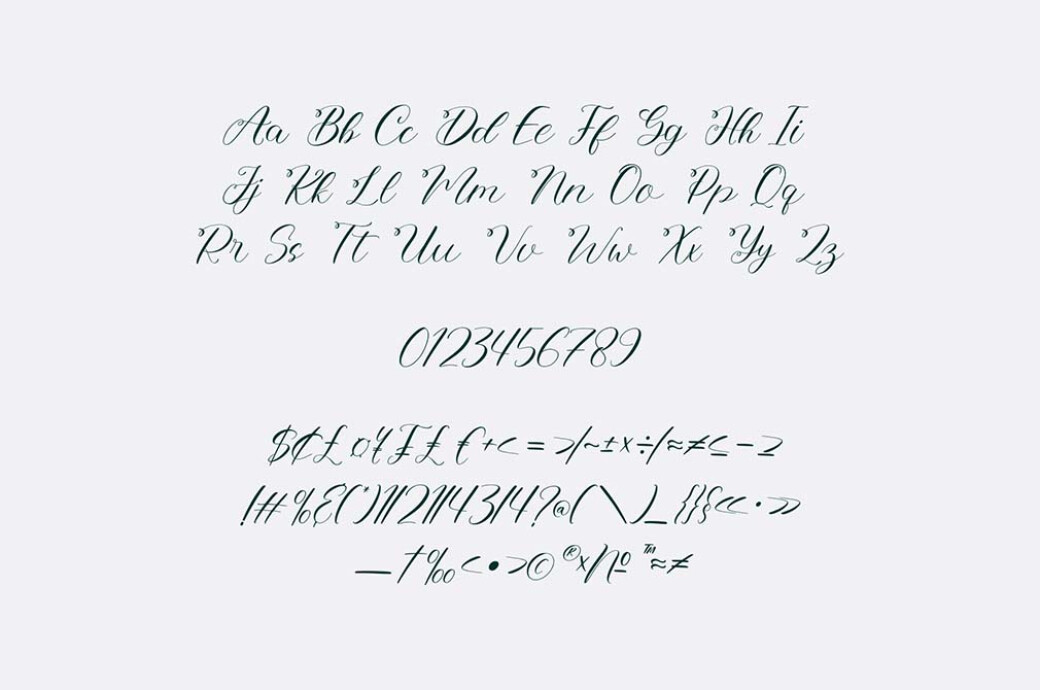 Aa Bb Cc Dd Ee Ff Gg Hh Ii
Jj Kk Ll Mm Nn Oo Pp Qq
Rr Ss Tt Uu Vv Ww Xx Yy Zz
0123456789
$¢£¤¥₣₤€+<=>/~±×÷/≈≠≤−≥
!#%&()1/21/43/4?@(\)_{}§«·»
—†‰‹•›©®×№™≈≠